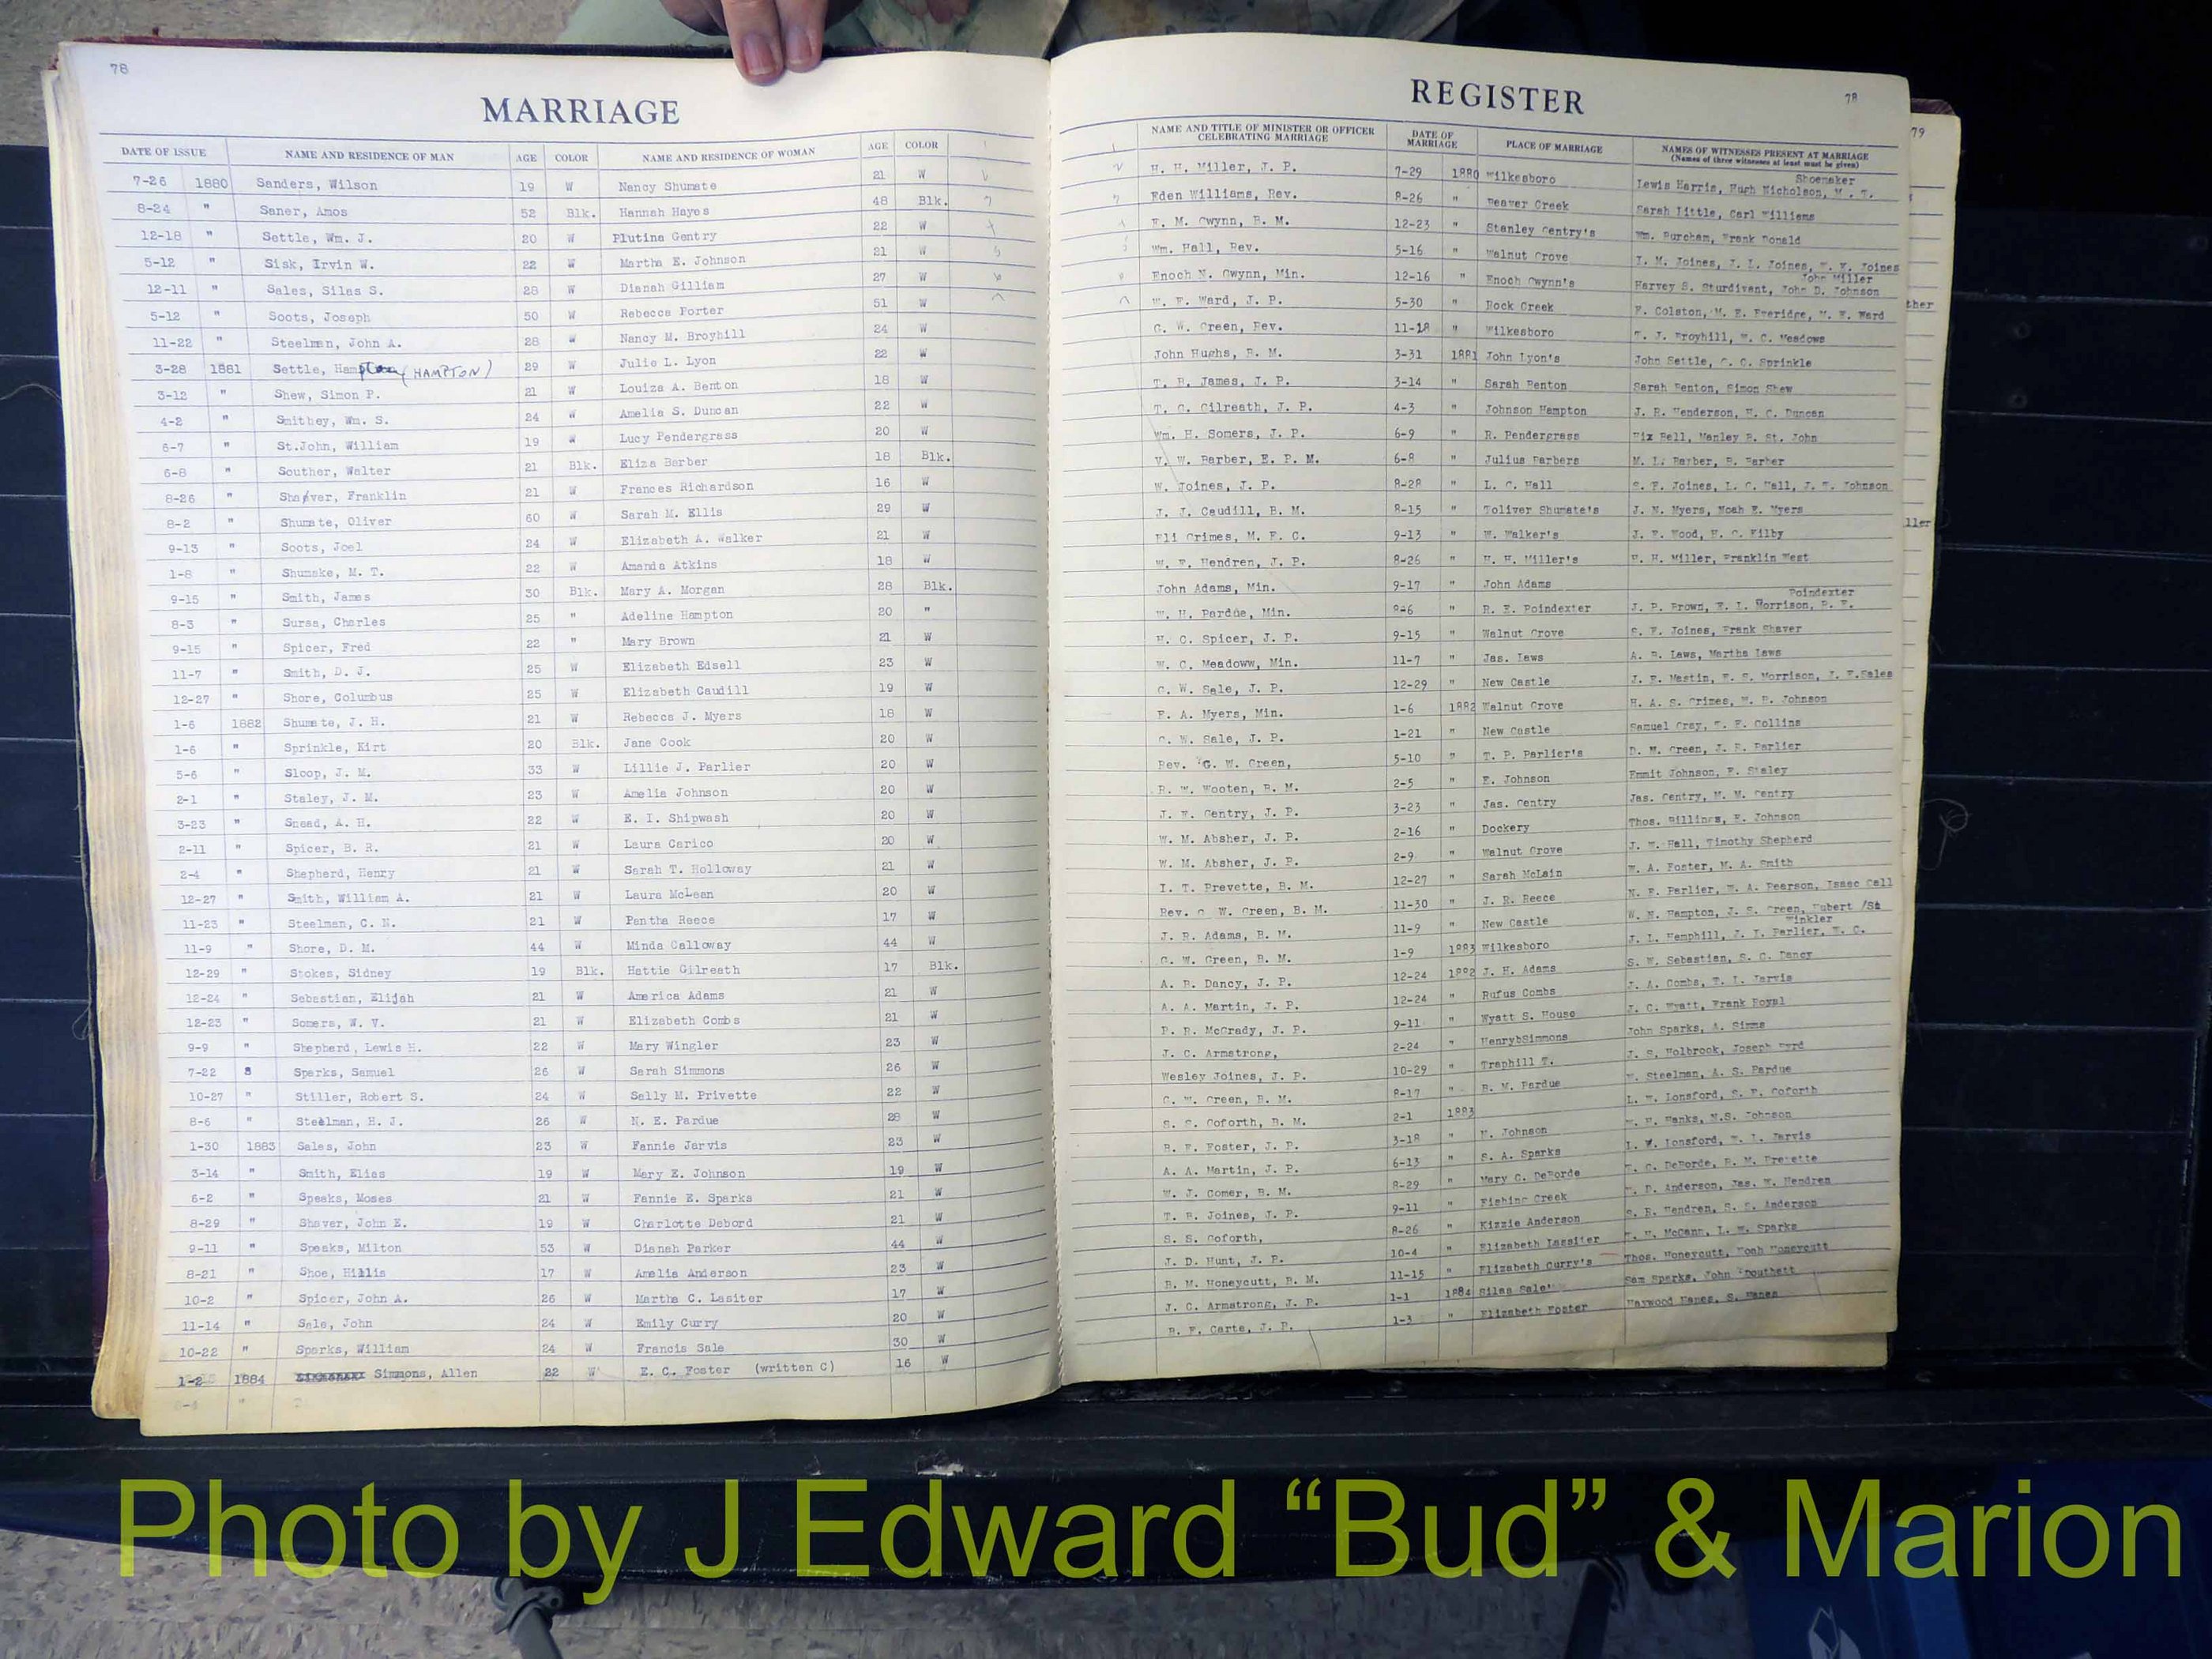 78
MARRIAGE
DATE OF ISSUE NAME AND RESIDENCE OF MAN AGE COLOR NAME AND RESIDENCE OF WOMAN AGE COLOR
7-26 1880 Sanders, Wilson 19 W Nancy Shumate 21 W
8-24 " Saner, Amos 52 Blk. Hannah Hayes 48 Blk.
12-18 " Settle, Wm. J. 20 W Plutina Gentry 22 W
5-12 " Sisk, Irvin W. 22 W Martha E. Johnson 21 W
12-11 " Sales, Silas S. 28 W Dianah Gilliam 27 W
5-12 " Soots, Joseph 50 W Rebecca Porter 51 W
11-22 " Steelman, John A. 28 W Nancy M. Broyhill 24 W
3-28 1881 Settle, Hampton (HAMPTON) 29 W Julie L. Lyon 22 W
3-12 " Shew, Simon P. 21 W Louiza A. Benton 18 W
4-2 " Smithey, Wm. S. 24 W Amelia S. Duncan 22 W
6-7 " St.John, William 19 W Lucy Pendergrass 20 W
6-8 " Souther, Walter 21 Blk. Eliza Barber 18 Blk.
8-26 " Shaver, Franklin 21 W Frances Richardson 16 W
8-2 " Shumate, Oliver 60 W Sarah M. Ellis 29 W
9-13 " Soots, Joel 24 W Elizabeth A. Walker 21 W
1-8 " Shumake, M. T. 22 W Amanda Atkins 18 W
9-15 " Smith, James 30 Blk. Mary A. Morgan 28 Blk.
8-3 " Sursa, Charles 25 " Adeline Hampton 20 "
9-15 " Spicer, Fred 22 " Mary Brown 21 W
11-7 " Smith, D. J. 25 W Elizabeth Edsell 23 W
12-27 " Shore, Columbus 25 W Elizabeth Caudill 19 W
1-6 1882 Shumate, J. H. 21 W Rebecca J. Myers 18 W
1-6 " Sprinkle, Kirt 20 Blk. Jane Cook 20 W
5-6 " Sloop, J. M. 33 W Lillie J. Parlier 20 W
2-1 " Staley, J. M. 23 W Amelia Johnson 20 W
3-23 " Snead, A. H. 22 W E. I. Shipwash 20 W
2-11 " Spicer, B. R. 21 W Laura Carico 20 W
2-4 " Shepherd, Henry 21 W Sarah T. Holloway 21 W
12-27 " Smith, William A. 21 W Laura McLean 20 W
11-23 " Steelman, C. N. 21 W Pantha Reece 17 W
11-9 " Shore, D. M. 44 W Minda Calloway 44 W
12-29 " Stokes, Sidney 19 Blk. Hattie Gilreath 17 Blk.
12-24 " Sebastian, Elijah 21 W America Adams 21 W
12-23 " Somers, W. V. 21 W Elizabeth Combs 21 W
9-9 " Shepherd, Lewis H. 22 W Mary Wingler 23 W
7-22 8 Sparks, Samuel 26 W Sarah Simmons 26 W
10-27 " Stiller, Robert S. 24 W Sally M. Privette 22 W
8-6 " Steelman, H. J. 26 W N. E. Pardue 28 W
1-30 1883 Sales, John 23 W Fannie Jarvis 23 W
3-14 " Smith, Elias 19 W Mary E. Johnson 19 W
6-2 " Speaks, Moses 21 W Fannie E. Sparks 21 W
8-29 " Shaver, John E. 19 W Charlotte Debord 21 W
9-11 " Speaks, Milton 53 W Dianah Parker 44 W
8-21 " Shoe, Hillis 17 W Amelia Anderson 23 W
10-2 " Spicer, John A. 26 W Martha C. Lasiter 17 W
11-14 " Sale, John 24 W Emily Curry 20 W
10-22 " Sparks, William 24 W Francis Sale 30 W
1-2 1884 Simmons, Allen 22 W E. C. Foster (written C) 16 W
REGISTER
78
NAME AND TITLE OF MINISTER OR OFFICER CELEBRATING MARRIAGE DATE OF MARRIAGE PLACE OF MARRIAGE NAMES OF WITNESSES PRESENT AT MARRIAGE
(Names of three witnesses at least must be given)
Shoemaker
H. H. Miller, J. P. 7-29 1880 Wilkesboro Lewis Harris, Hugh Nicholson, M. T.
Eden Williams, Rev. 8-26 " Beaver Creek Sarah Little, Carl Williams
E. M. Gwynn, B. M. 12-23 " Stanley Gentry's Wm. Burcham, Frank Donald
Wm. Hall, Rev. 5-16 " Walnut Grove I. M. Joines, J. L. Joines, Joines
John Miller
Enoch N. Gwynn, Min. 12-16 " Enoch Gwynn's Harvey S. Sturdivant, John D. Johnson
W. F. Ward, J. P. 5-30 " Rock Creek F. Colston, M. E. Everidge, W. F. Ward
G. W. Green, Rev. 11-18 " Wilkesboro T. J. Broyhill, W. C. Meadows
John Hughs, B. M. 3-31 1881 John Lyon's John Settle, C. C. Sprinkle
T. B. James, J. P. 3-14 " Sarah Benton Sarah Benton, Simon Shew
T. C. Gilreath, J. P. 4-3 " Johnson Hampton J. R. Henderson, H. C. Duncan
Wm. H. Somers, J. P. 6-9 " R. Pendergrass Hix Bell, Manley B. St. John
V. W. Barber, E. P. M. 6-8 " Julius Barbers M. L. Barber, B. Barber
W. Joines, J. P. 8-28 " L. C. Hall S. F. Joines, L. C. Hall, J. W. Johnson
J. J. Caudill, B. M. 8-15 " Toliver Shumate's J. N. Myers, Noah E. Myers
Eli Grimes, M. E. C. 9-13 " W. Walker's J. F. Wood, H. C. Kilby
W. F. Hendren, J. P. 8-26 " H. H. Miller's H. H. Miller, Franklin West
John Adams, Min. 9-17 " John Adams
Poindexter
W. H. Pardue, Min. 8-6 " R. E. Poindexter J. P. Brown, E. L. Morrison, R. E.
H. C. Spicer, J. P. 9-15 " Walnut Grove S. F. Joines, Frank Shaver
W. C. Meadoww, Min. 11-7 " Jas. Laws A. B. Laws, Martha Laws
C. W. Sale, J. P. 12-29 " New Castle J. F. Mastin, E. S. Morrison, J. F.Sales
F. A. Myers, Min. 1-6 1882 Walnut Grove H. A. S. Grimes, W. B. Johnson
C. W. Sale, J. P. 1-21 " New Castle Samuel Gray, T. F. Collins
Rev. G. W. Green, 5-10 " T. P. Parlier's D. M. Green, J. E. Parlier
R. W. Wooten, B. M. 2-5 " E. Johnson Emmit Johnson, F. Staley
J. W. Gentry, J. P. 3-23 " Jas. Gentry Jas. Gentry, M. M. Gentry
W. M. Absher, J. P. 2-16 " Dockery Thos. Billings, E. Johnson
W. M. Absher, J. P. 2-9 " Walnut Grove J. W. Hall, Timothy Shepherd
I. T. Prevette, B. M. 12-27 " Sarah McLain W. A. Foster, M. A. Smith
Rev. G W. Green, B. M. 11-30 " J. R. Reece N. E. Parlier, W. A. Pearson, Isaac Call
J. R. Adams, B. M. 11-9 " New Castle W. N. Hampton, J. S. Green, Hubert /St
Winkler
G. W. Green, B. M. 1-9 1883 Wilkesboro J. L. Hemphill, J. I. Parlier, W. C.
A. B. Dancy, J. P. 12-24 1882 J. H. Adams S. W. Sebastian, S. C. Dancy
A. A. Martin, J. P. 12-24 " Rufus Combs J. A. Combs, T. L. Jarvis
P. R. McGrady, J. P. 9-11 " Wyatt S. House J. C. Wyatt, Frank Royal
J. C. Armstrong, 2-24 " HenrybSimmons John Sparks, A. Simms
Wesley Joines, J. P. 10-29 " Traphill T. J. S. Holbrook, Joseph Byrd
G. W. Green, B. M. 8-17 " R. M. Pardue W. Steelman, A. S. Pardue
S. S. Goforth, B. M. 2-1 1883 L. W. Lonsford, S. F. Goforth
B. F. Foster, J. P. 3-18 " Johnson Hanks, N.S. Johnson
A. A. Martin, J. P. 6-13 " S. A. Sparks L. W. Lonsford, W. L. Jarvis
W. J. Comer, B. M. 8-29 " Mary C. DeBorde C. DeBorde, R. M. Prevette
T. B. Joines, J. P. 9-11 " Fishing Creek D. Anderson, Jas. W. Hendren
S. S. Goforth, 8-26 " Kizzie Anderson Hendren, Anderson
J. D. Hunt, J. P. 10-4 " Elizabeth Lassiter McCann, L. W. Sparks
R. M. Honeycutt, B. M. 11-15 " Elizabeth Curry's Thos. Honeycutt, Noah Honeycutt
J. C. Armstrong, J. P. 1-1 1884 Silas Sale' Sam Sparks, John Douthett
B. F. Carte, J. P. 1-3 " Elizabeth Foster Haywood Hanes, S. Hanes
79
ther
ller
Photo by J Edward “Bud” & Marion